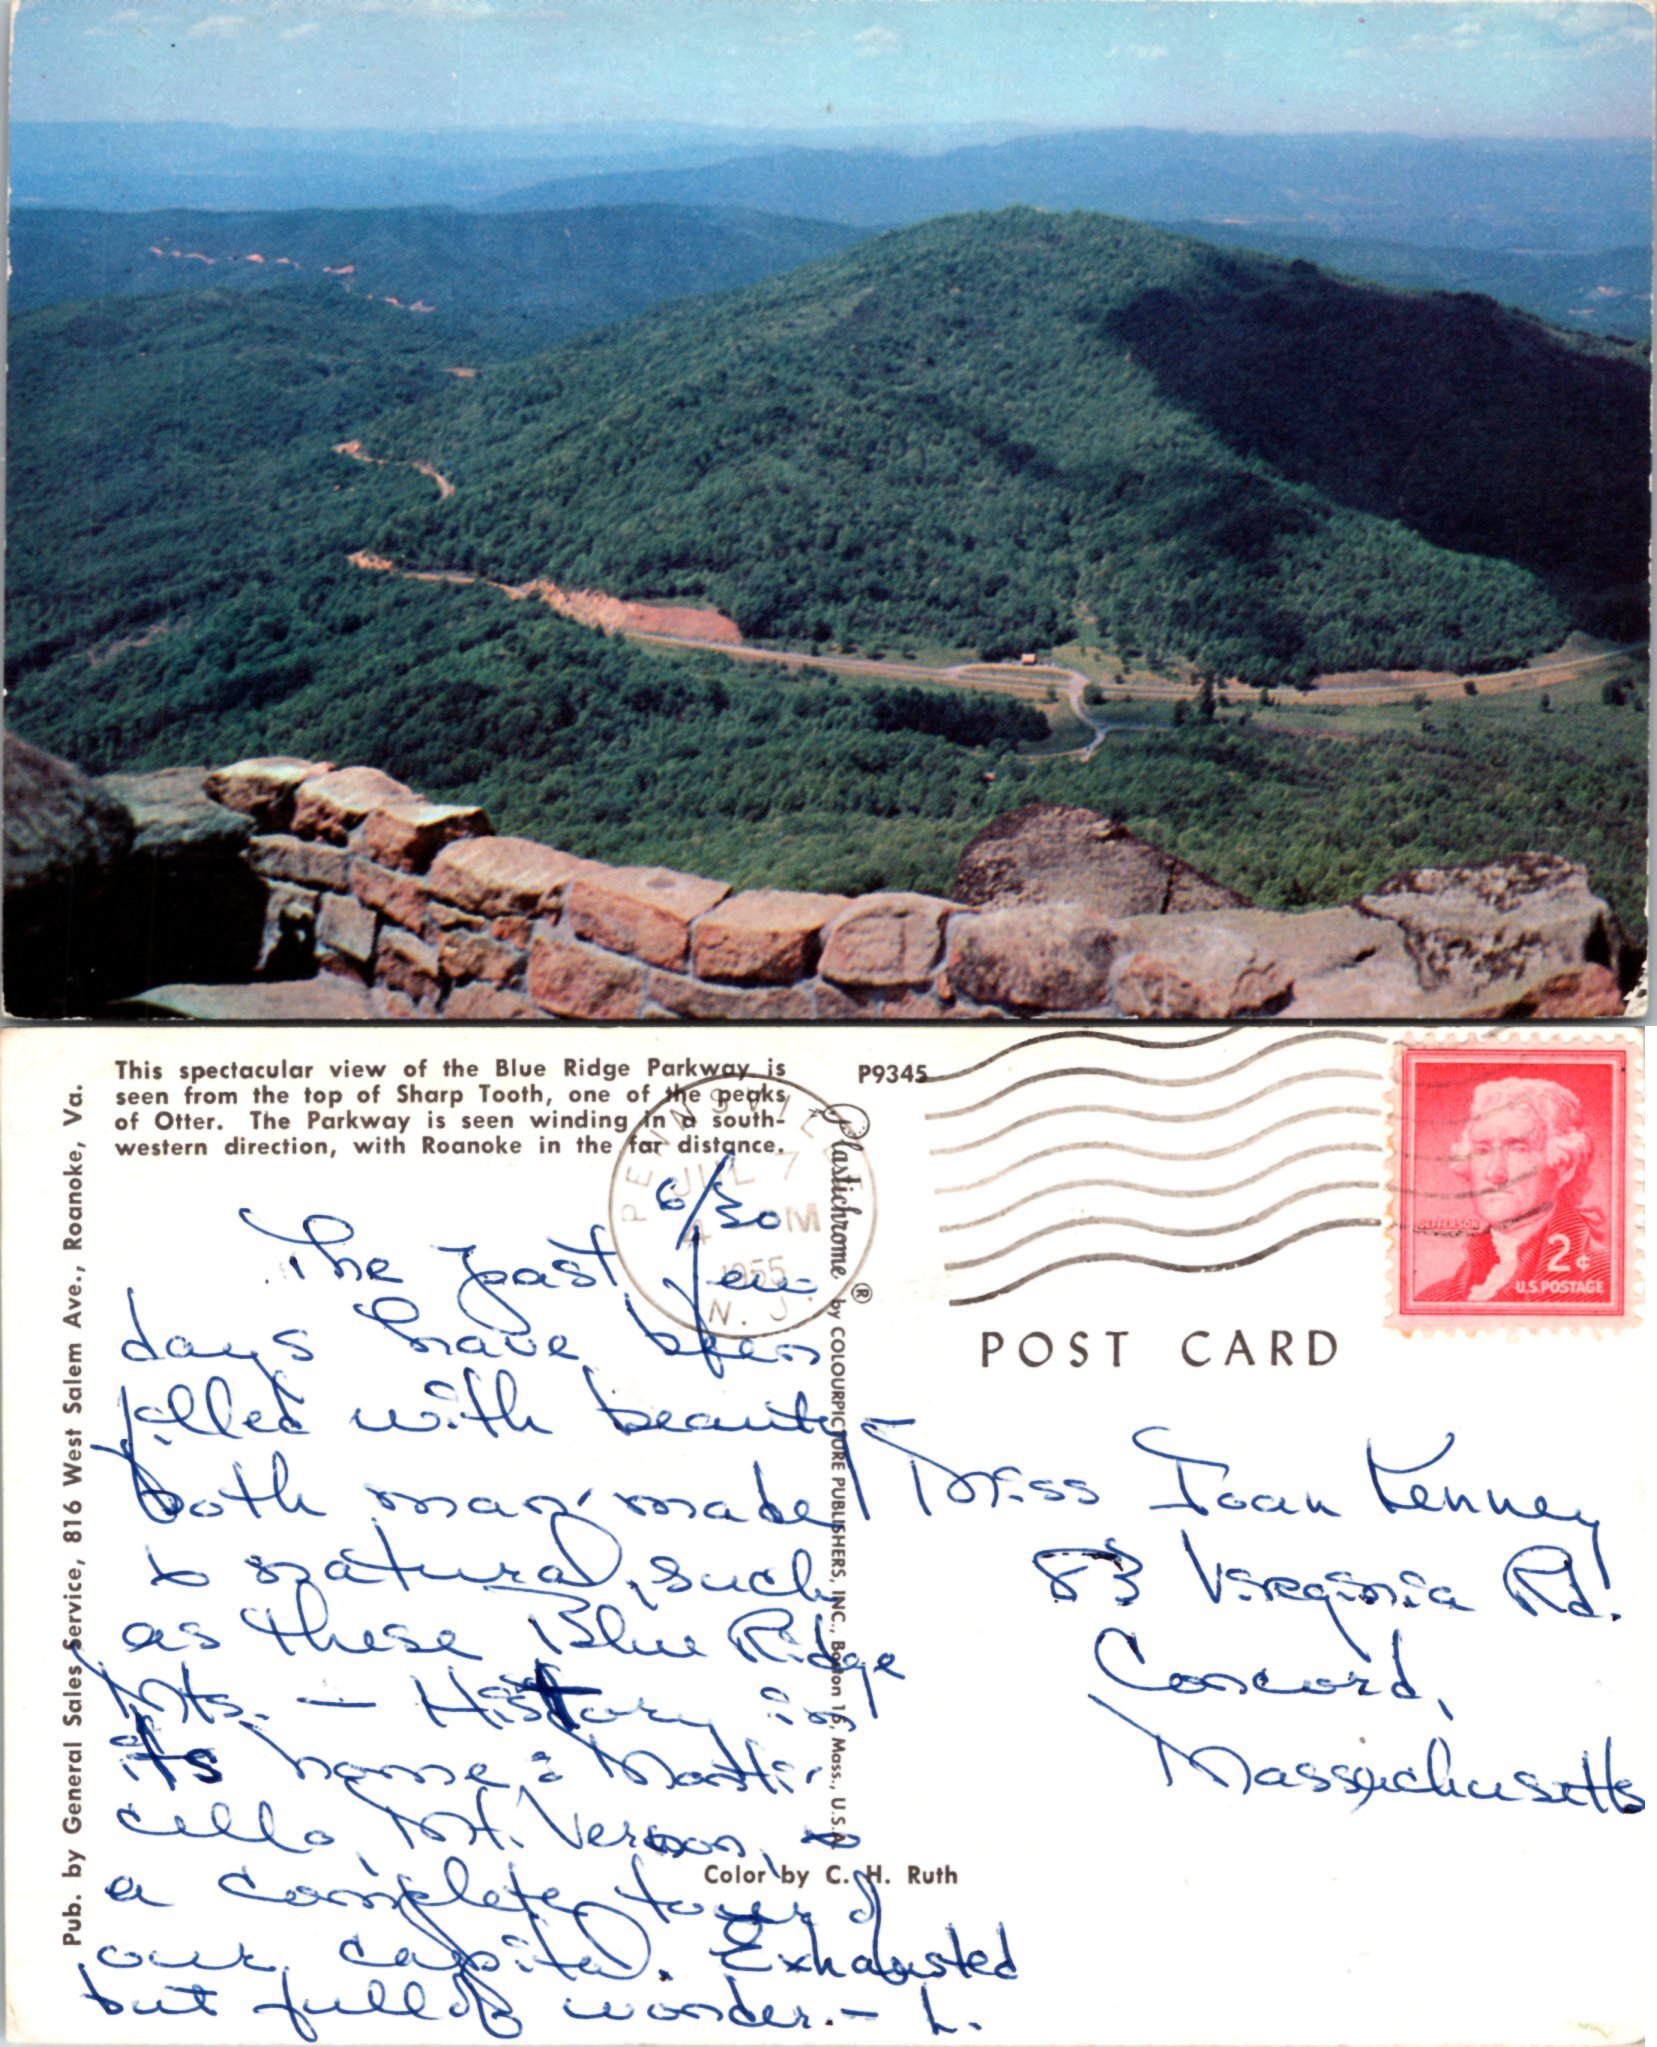 This spectacular view of the Blue Ridge Parkway is
seen from the top of Sharp Tooth, one of the peaks
of Otter. The Parkway is seen winding in a south-
western direction, with Roanoke in the far distance.
P9345
PENNSVILLE
JUL 7
4 M
1955
N. J.
JEFFERSON
2¢
U.S. POSTAGE
Pub. by General Sales Service, 816 West Salem Ave., Roanoke, Va.
Plastichrome ® by COLOURPICTURE PUBLISHERS, INC., Boston 16, Mass., U.S.A.
POST CARD
6/30
The past few
days have been
filled with beauty –
both man-made
& natural, such
as these Blue Ridge
Mts. — History in
its home: Monti-
cello, Mt. Vernon, &
a complete tour of
our capital. Exhausted
but full of wonder. – L.
Color by C. H. Ruth
Miss Joan Kenney
83 Virginia Rd.
Concord,
Massachusetts